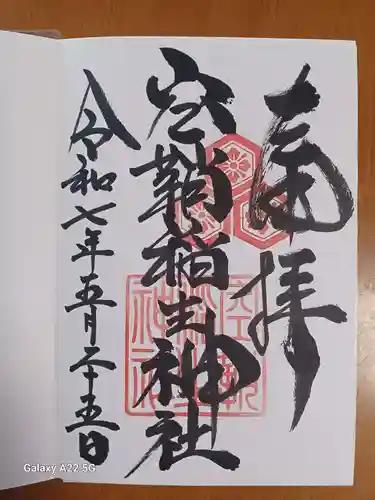 奉拝
空鞘稲生神社
令和七年五月二十五日
Galaxy A22 5G